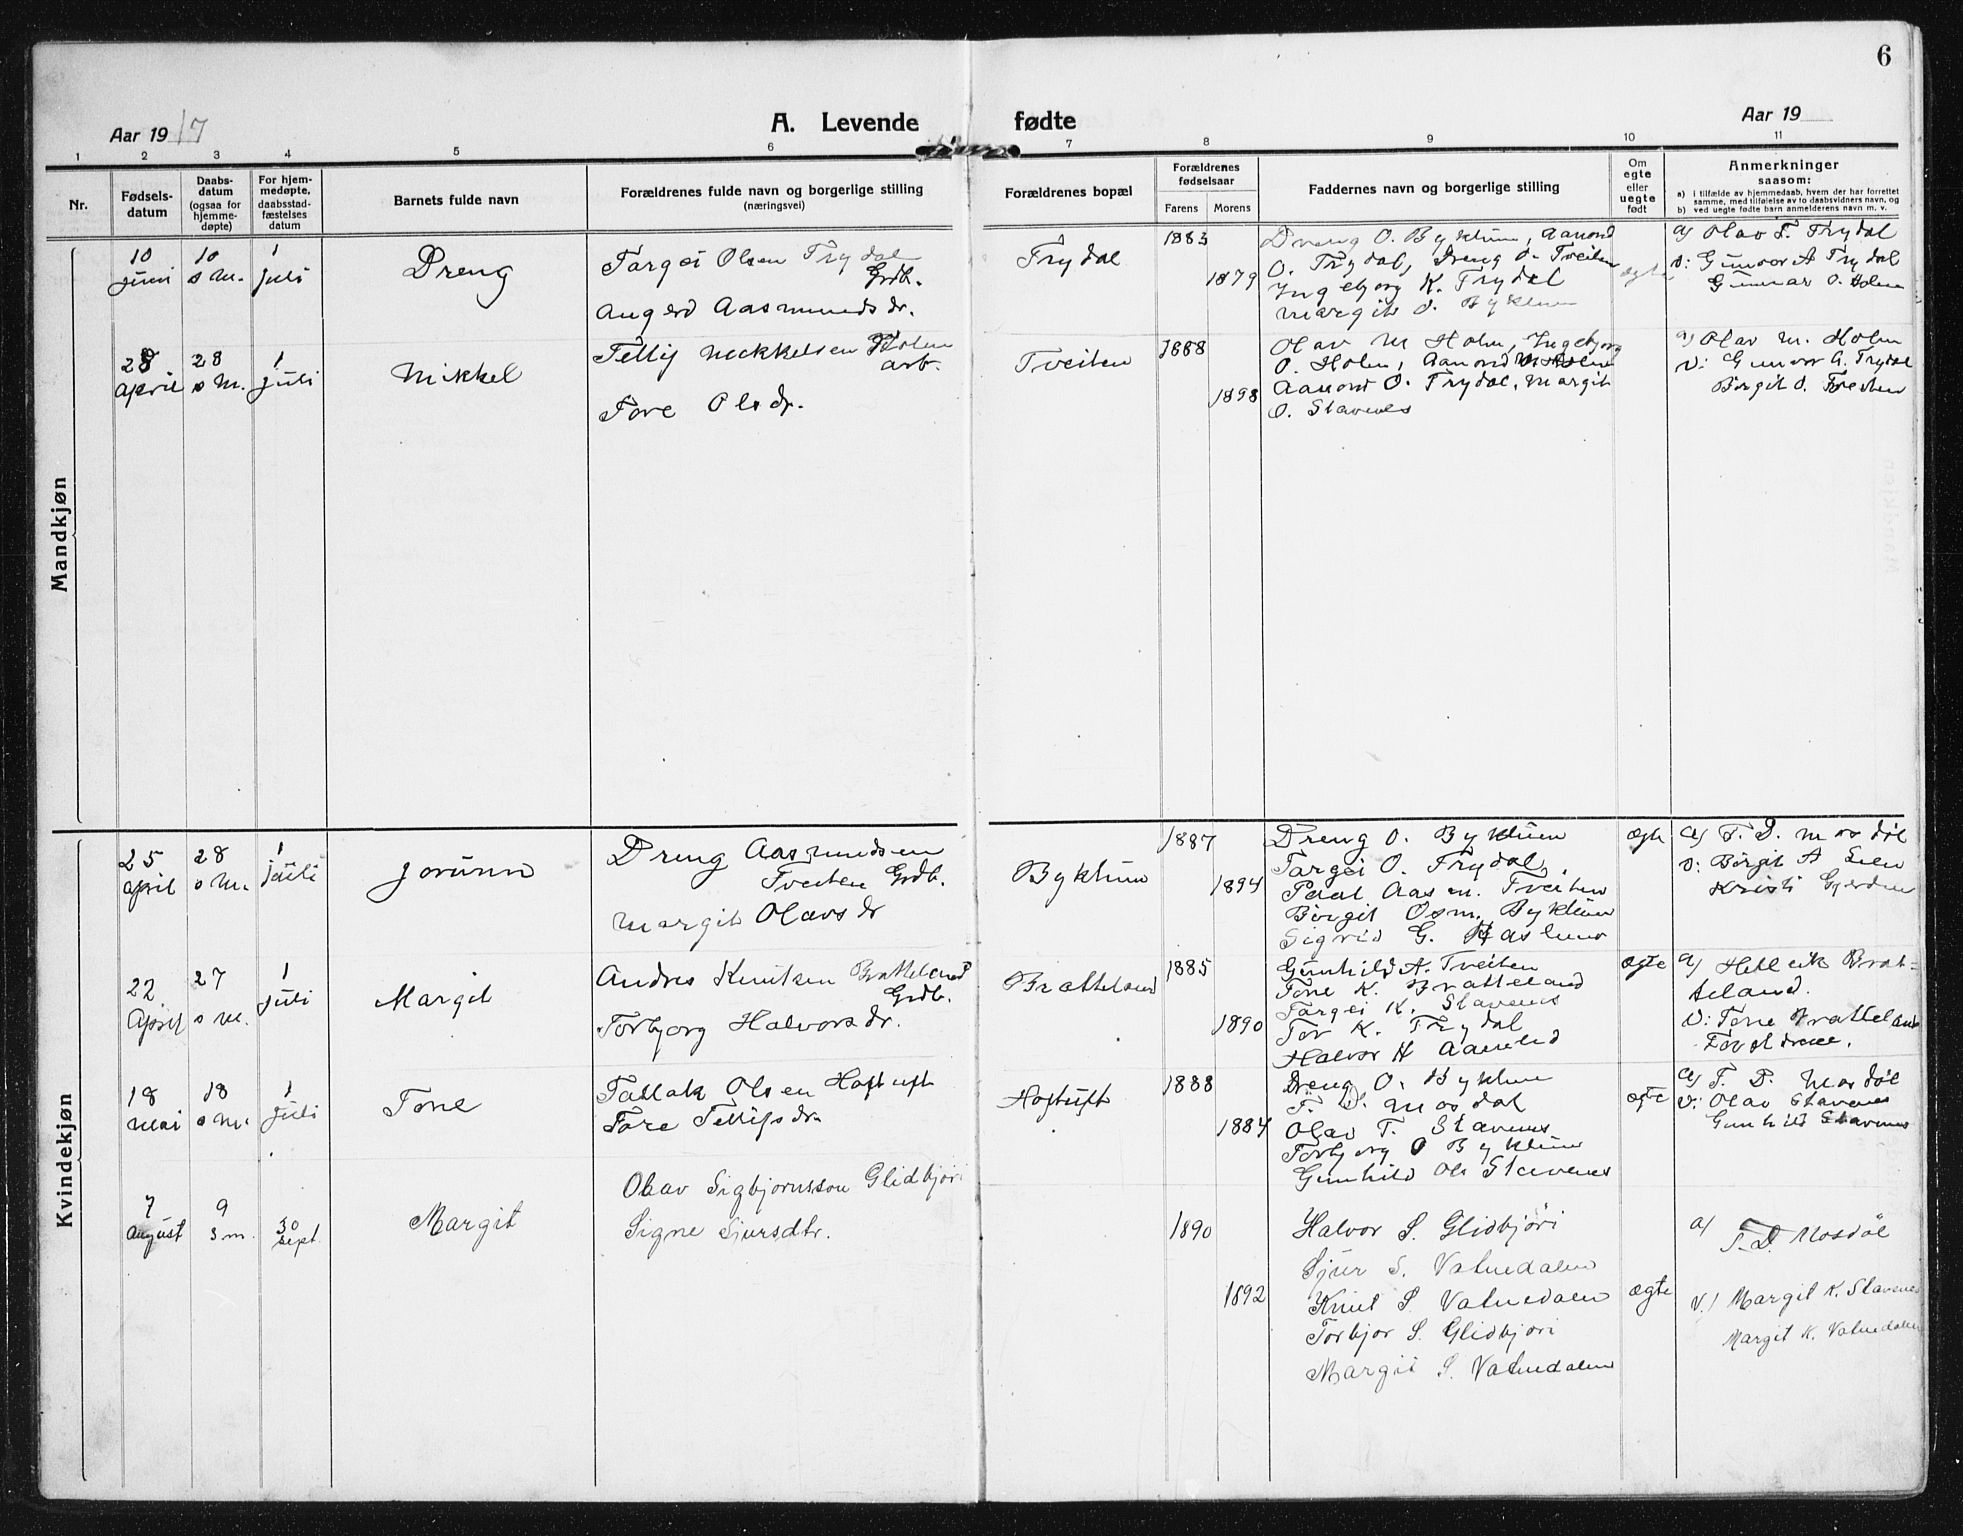 6
Aar 1917
A. Levende fødte
Aar 19
1 2 3 4 5 6 7 8 9 10 11
Nr.
Fødsels-
datum
Daabs-
datum
(ogsaa for
hjemme-
døpte)
For hjem-
medøpte,
daabsstad-
fæstelses
datum
Barnets fulde navn
Forældrenes fulde navn og borgerlige stilling
(næringsvei)
Forældrenes bopæl
Forældrenes
fødselsaar
Farens Morens
Faddernes navn og borgerlige stilling
Om
egte
eller
uegte
født
Anmerkninger
saasom:
a) i tilfælde av hjemmedaab, hvem der har forrettet
samme, med tilføielse av to daabsvidners navn, og
b) ved uegte fødte barn anmelderens navn m. v.
Mandkjøn
10
juni
10
s m.
1
juli
Dreng
Targei Olsen Trydal
Grdb.
Angerd Aasmundsdr.
Trydal
1883
1879
Dreng O. Byklum, Aanond
O. Trydal, Dreng O. Tveiten
Ingebjorg K. Trydal
Margit O. Byklum
egte
a) Olav T. Trydal
v: Gunvor A Trydal
Gunnar O. Holen
28
april
28
s m.
1
juli
Mikkel
Tellif Mikkelsen Holen
arb.
Tore Olsdr.
Tveiten
1888
1898
Olav M Holen, Ingebjorg
O. Holen, Aanond M Holen
Aanond O. Trydal, Margit
O. Stavenes
a) Olav M. Holen
v: Gunvor A. Trydal
Birgit O. Tveiten
Kvindekjøn
25
april
28
s m.
1
juli
Jorunn
Dreng Aasmundsen
Tveiten Grdb.
Margit Olavsdr
Byklum
1887
1894
Dreng O. Byklum
Targei O. Trydal,
Paal Aasm. Tveiten
Birgit Osm. Byklum
Sigrid G.
ægte
a) T. D. Mosdøl
v: Birgit A Lien
Kristi Gjerden
22
April
27
s m.
1
juli
Margit
Andres Knutsen Bratteland
Grdb.
Torbjorg Halvorsdr.
Bratteland
1885
1890
Gunhild A. Tveiten
Tone K. Bratteland
Targei K. Stavenes
Tor K. Trydal
Halvor H
ægte
a) Helleik Brat-
teland.
v: Tone Bratteland
18
mai
18
s m.
1
juli
Tone
Tallak Olsen Hoftuft
Tore Tellifsdr.
Hoftuft
1888
1884
Dreng O. Byklum
T. D. Mosdal
Olav T. Stavenes
Torbjorg O Byklum
Gunhild Ol. Stavenes
ægte
a) T. D. Mosdøl
v: Olav Stavenes
Gunhild Stavenes
7
august
9
s m.
30
sept.
Margit
Olav Sigbjornsson Glidbjori
Signe Sjursdtr.
1890
1892
Halvor S. Glidbjöri
Sjur S. Vatnedalen
Knut S. Vatnedalen
Torbjor S. Glidbjori
Margit S. Vatnedalen
ægte
a) T. D. Mosdøl
v.) Margit K. Stavenes
Margit K. Vatnedalen